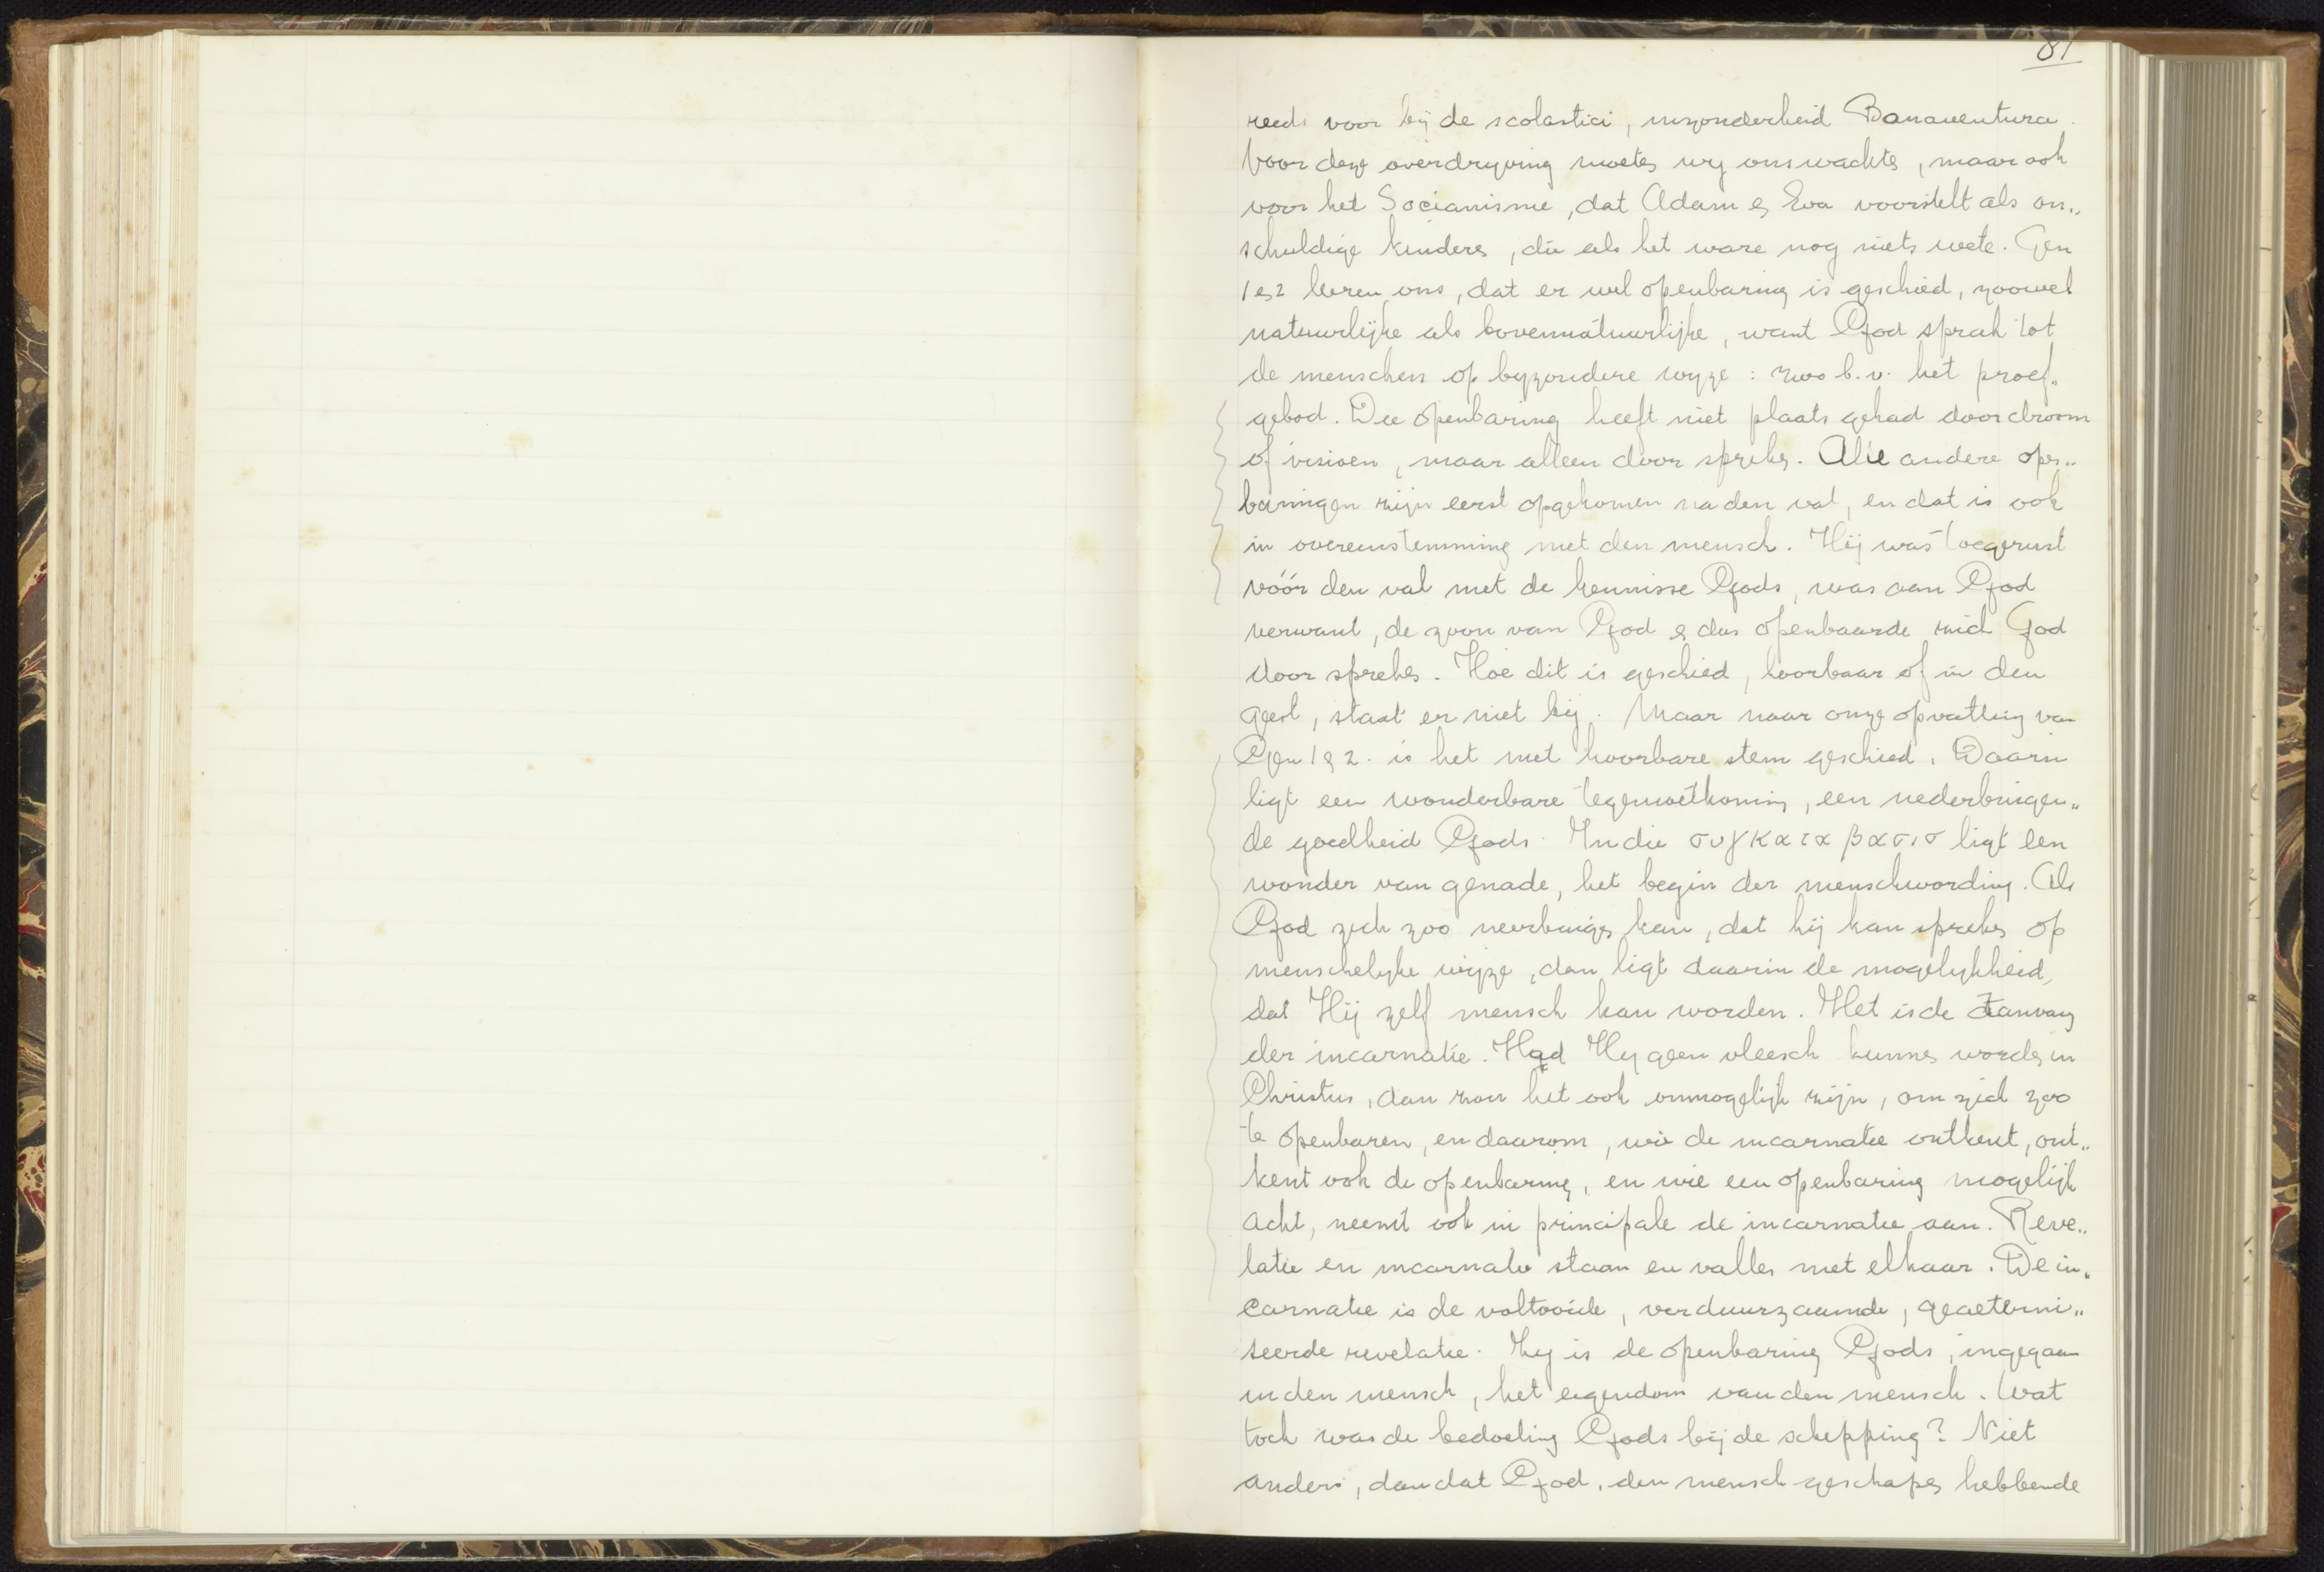 81
reeds voor bij de scolastici, inzonderheid Bonaventura.
Voor deze overdryving moeten wy ons wachten, maar ook
voor het Socianisme, dat Adam en Eva voorstelt als on„
schuldige kinderen, die als het ware nog niets weten. Gen
1 en 2 leeren ons, dat er wel openbaring is geschied, zoowel
natuurlijke als bovennatuurlijke, want God sprak tot
de menschen op byzondere wyze: zoo b.v. het proef„
gebod. Die openbaring heeft niet plaats gehad door droom
of visioen, maar alleen door spreken. Alle andere open„
baringen zijn eerst opgekomen na den val, en dat is ook
in overeenstemming met den mensch. Hij was toegerust
vóór den val met de kennisse Gods, was aan God
verwant, de zoon van God en dus openbaarde zich God
door spreken. Hoe dit is geschied, hoorbaar of in den
geest, staat er niet bij. Maar naar onze opvatting van
Gen 1 en 2. is het met hoorbare stem geschied. Daarin
ligt een wonderbare tegemoetkoming, een nederbuigen„
de goedheid Gods. In die συγκαταβασισ ligt een
wonder van genade, het begin der menschwording. Als
God zich zoo neerbuigen kan, dat hij kan spreken op
menschelyke wijze, dan ligt daarin de mogelykheid,
dat Hij zelf mensch kan worden. Het is de aanvang
der incarnatie. Had Hy geen vleesch kunnen worden in
Christus, dan zou het ook onmogelijk zijn, om zich zoo
te openbaren, en daarom, wie de incarnatie ontkent, ont„
kent ook de openbaring, en wie een openbaring mogelijk
acht, neemt ook in principale de incarnatie aan. Reve„
latie en incarnatie staan en vallen met elkaar. De in„
carnatie is de voltooide, verduurzaamde, geaeterni„
seerde revelatie. Zy is de openbaring Gods, ingegaan
in den mensch, het eigendom van den mensch. Wat
toch was de bedoeling Gods bij de schepping? Niet
anders, dan dat God, den mensch geschapen hebbende